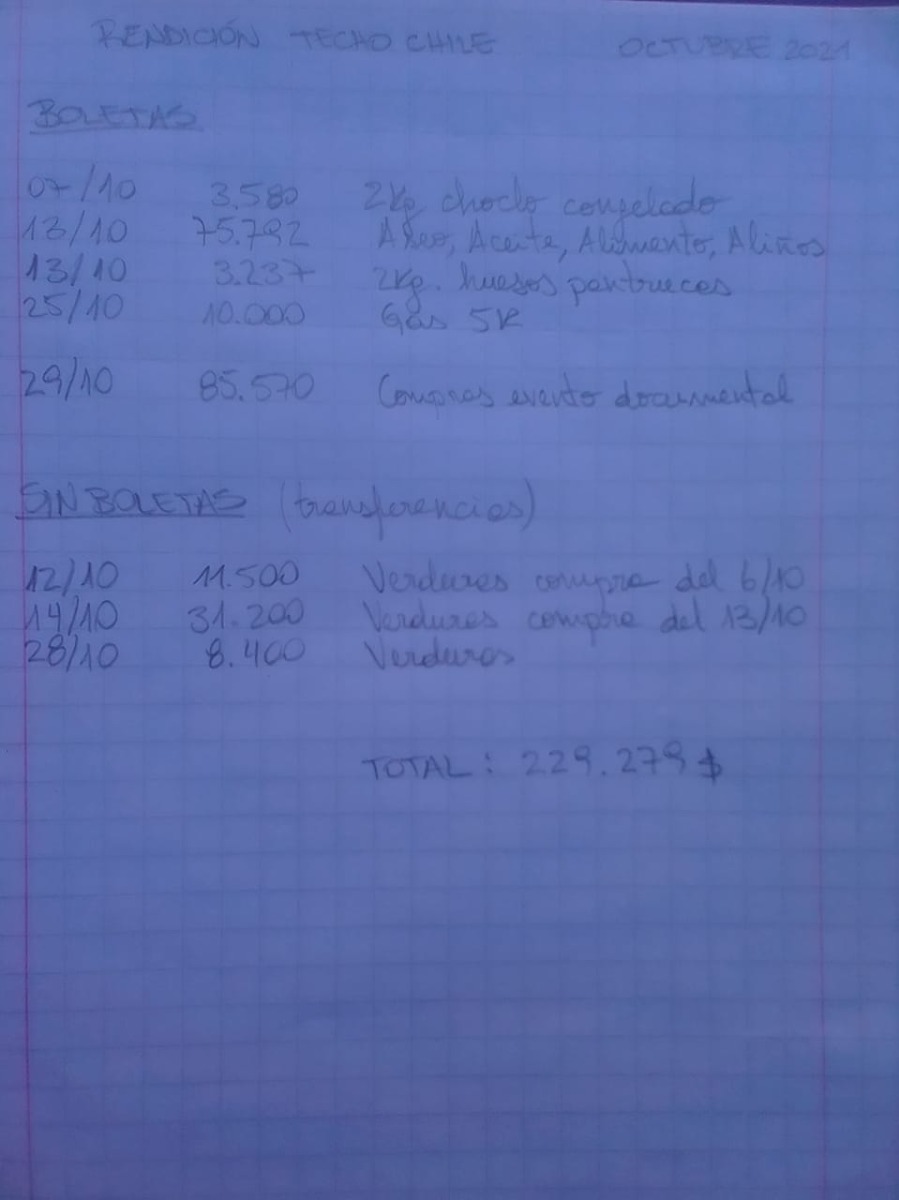 RENDICIÓN TECHO CHILE OCTUBRE 2021
BOLETAS
07/10 3.580 2Kg choclo congelado
13/10 75.792 Aseo, Aceite, Alimento, Aliños
13/10 3.237 2Kg. huesos pantrucas
25/10 10.000 Gas 5K
29/10 85.570 Compras evento documental
SIN BOLETAS (transferencias)
12/10 11.500 Verduras compra del 6/10
14/10 31.200 Verduras compra del 13/10
28/10 8.400 Verduras
TOTAL: 229.279$